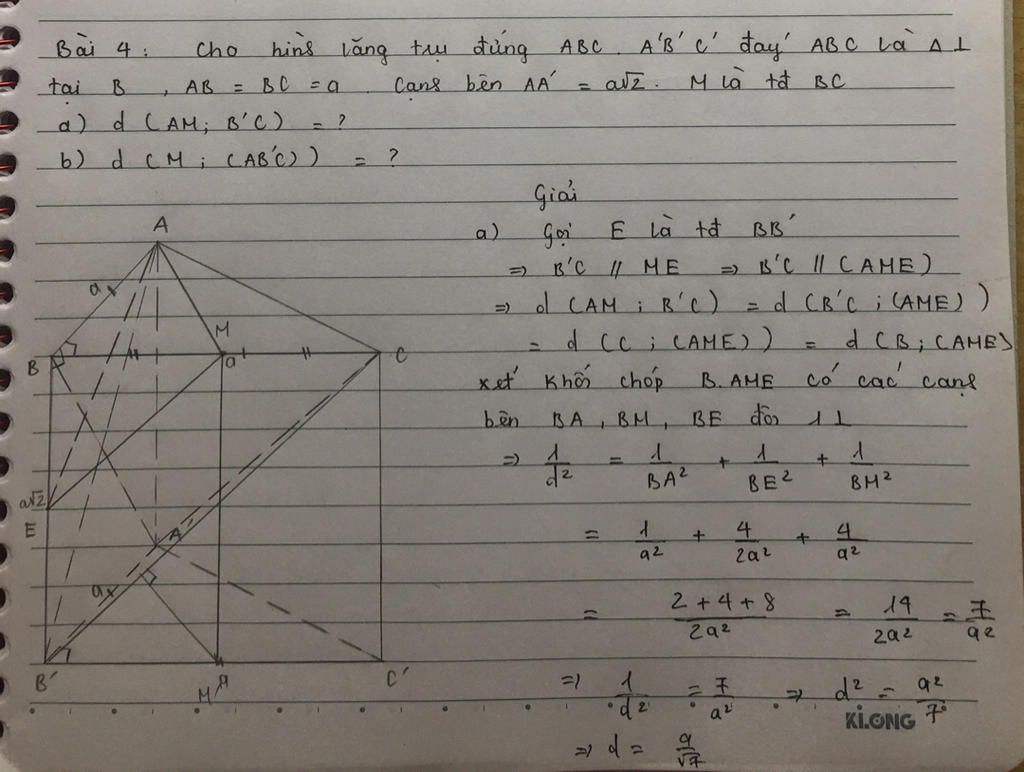 Bài 4 : Cho hình lăng trụ đứng ABC . A'B'C' đáy ABC là Δ ⊥
tại B , AB = BC = a . Cạnh bên AA' = a√2 . M là tđ BC
a) d (AM ; B'C) = ?
b) d (M ; (AB'C)) = ?
Giải
a) Gọi E là tđ BB'
⇒ B'C // ME ⇒ B'C // (AME)
⇒ d (AM ; B'C) = d (B'C ; (AME))
= d (C ; (AME)) = d (B ; (AME)
xét khối chóp B.AME có các cạnh
bên BA , BM , BE đôi 1 ⊥
⇒ 1/d² = 1/BA² + 1/BE² + 1/BM²
= 1/a² + 4/2a² + 4/a²
= 2 + 4 + 8/2a² = 14/2a² = 7/a²
⇒ 1/d² = 7/a² ⇒ d² = a²/7
⇒ d = a/√7
A
a
M
B
a
C
a√2
E
A'
a
B'
M'
C'
KLONG